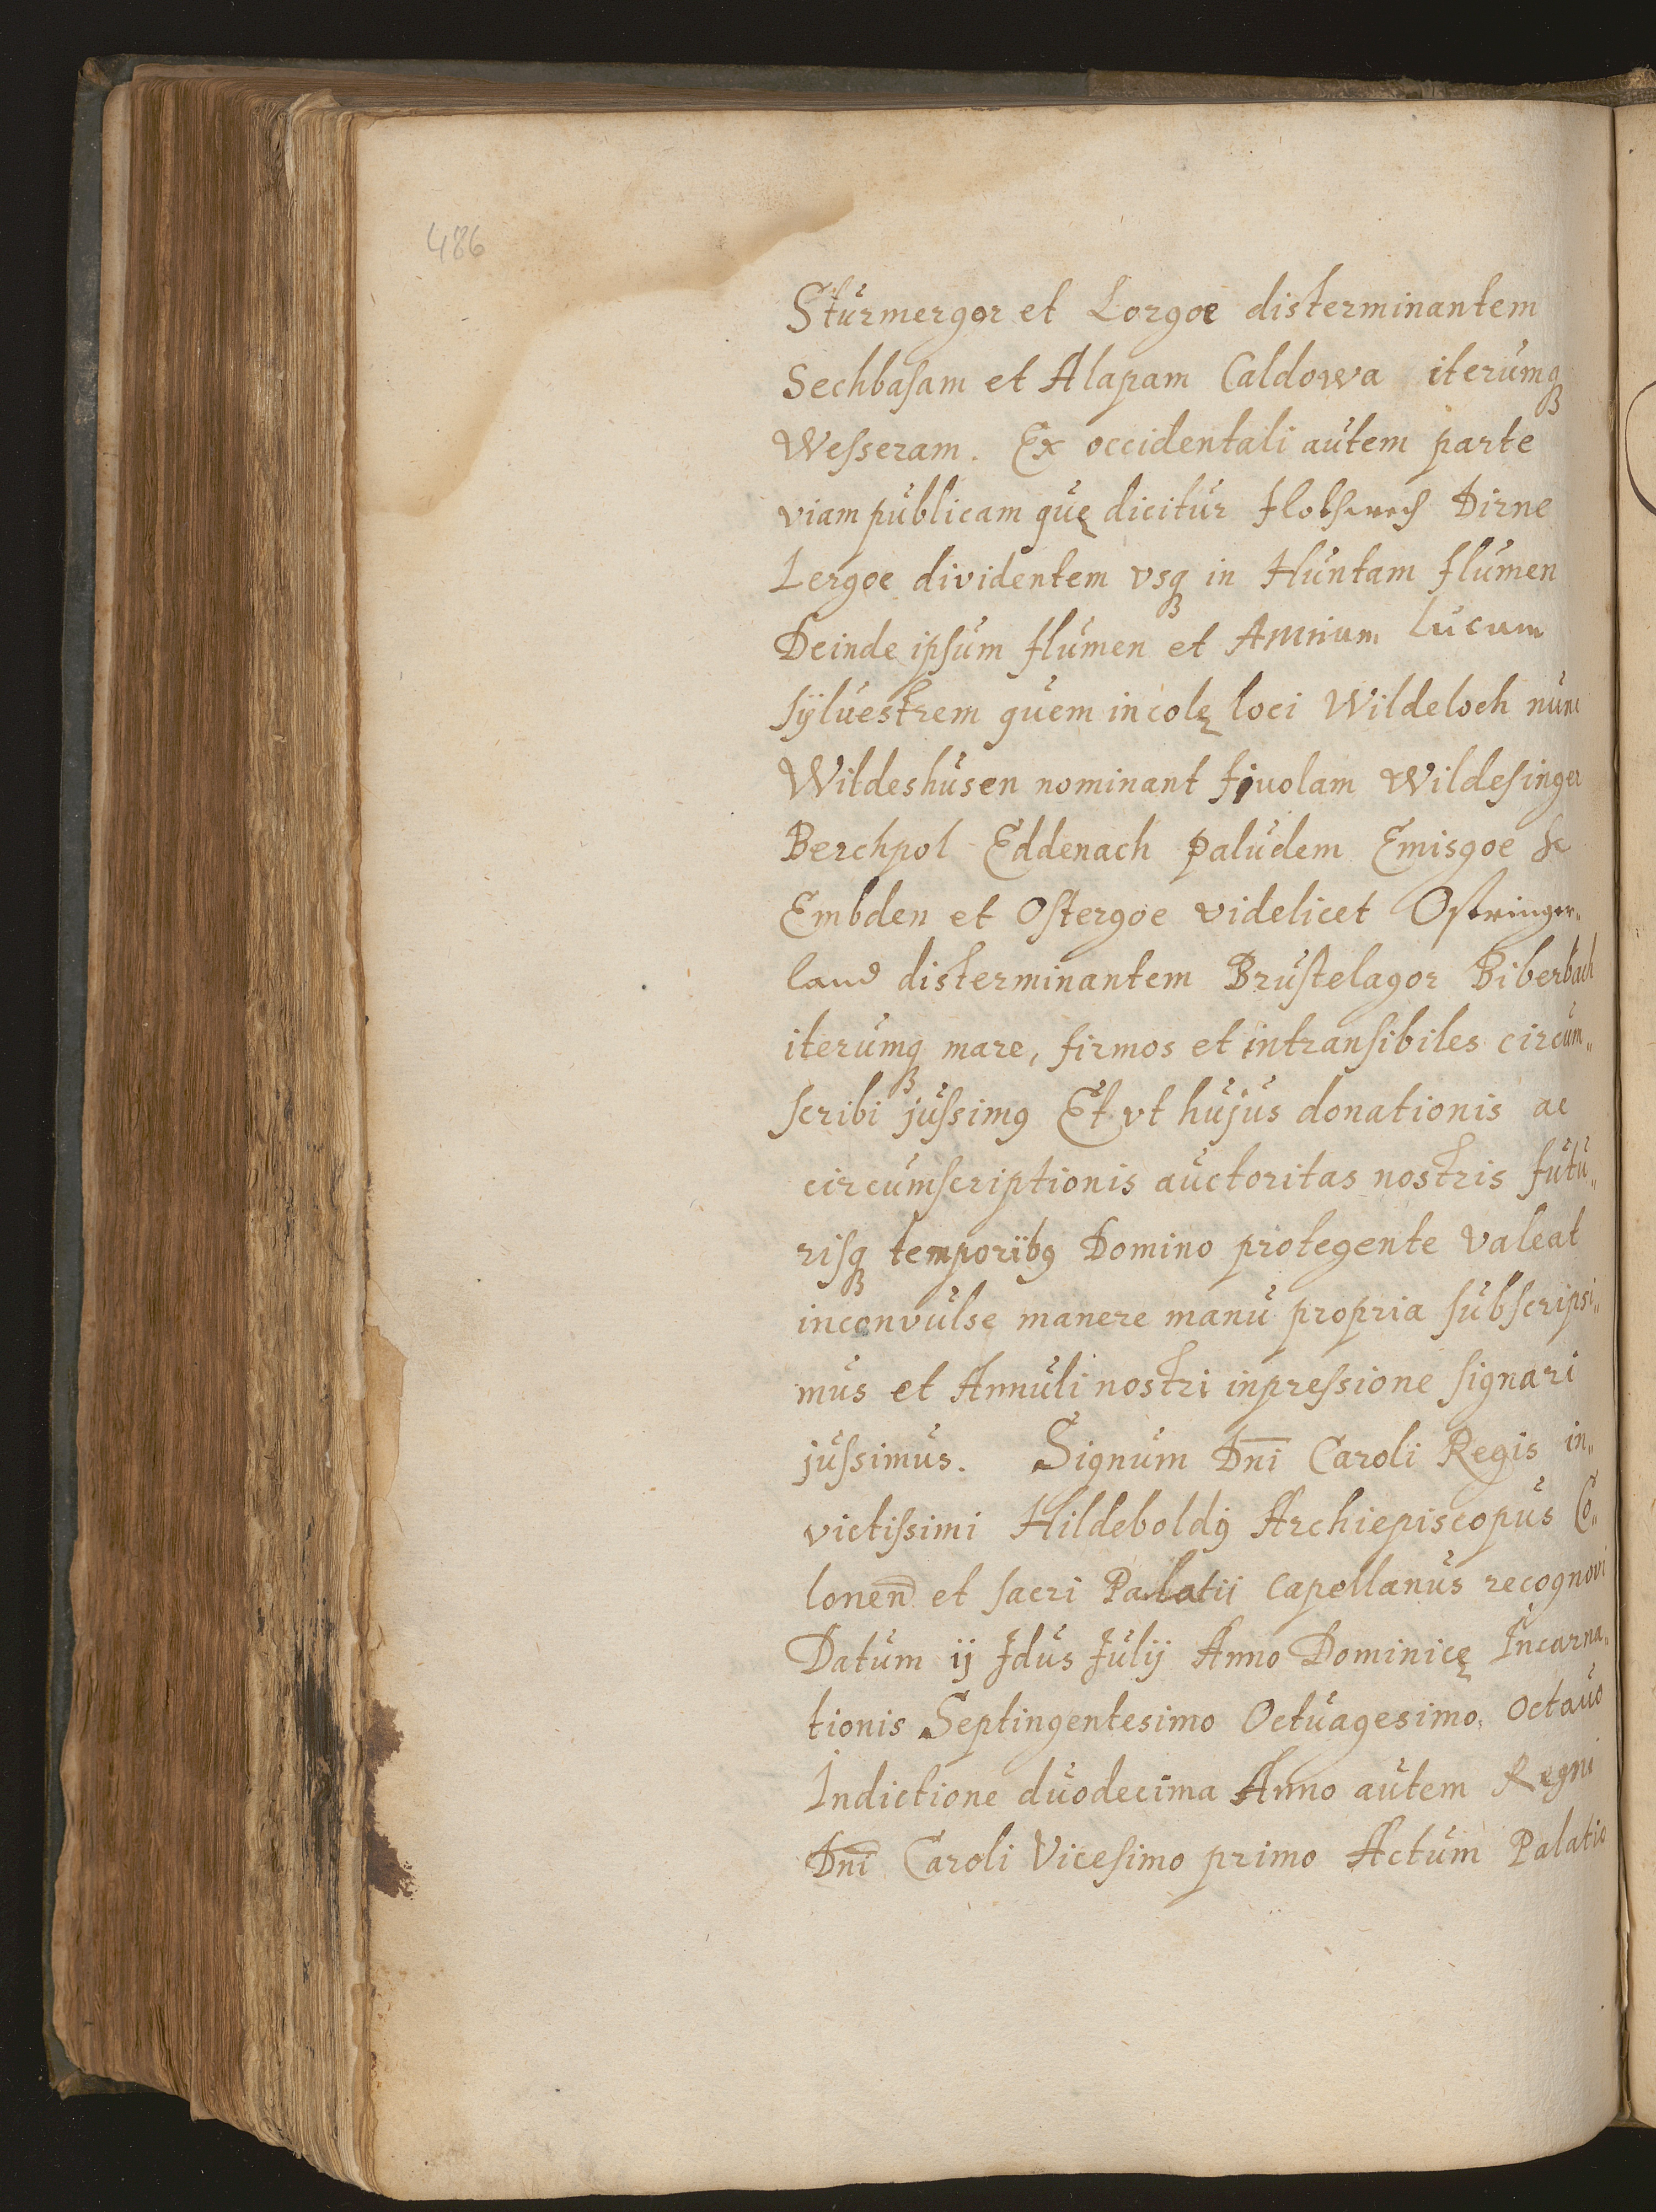 486
Sturmergor et Lorgoe disterminantem
Sechbasam et Alapam Caldowa iterumq
Wesseram. Ex occidentali autem parte
viam publicam quę dicitur Dirne
Lergoe dividentem vsq in Huntam flumen
Deinde ipsum flumen et Amnium lucum
sÿluestrem quem incolę loci Wildeloch nunc
Wildeshusen nominant fiuolam Wildesinger
Berchpol Eddenach paludem Emisgoe sc
Embden et Ostergoe videlicet Ostringer„
land disterminantem Brustelagor Biberbach
iterumq mare, firmos et intransibiles circum„
scribi jussimꝰ Et vt hujus donationis ac
circumscriptionis auctoritas nostris futu„
risq temporibꝰ Domino protegente valeat
inconvulse manere manu propria subscripsi„
mus et Annuli nostri inpressione signari
jussimus. Signum Dn̄i Caroli Regis in„
victissimi Hildeboldꝰ Archiepiscopus Co„
lonen̄ et sacri Palatii Capellanus recognovi
Datum ij Idus Julij Anno Dominicę Incarna„
tionis Septingentesimo Octuagesimo, Octauo
Indictione duodecima Anno autem Regni
Dn̄i Caroli Vicesimo primo Actum Palatio